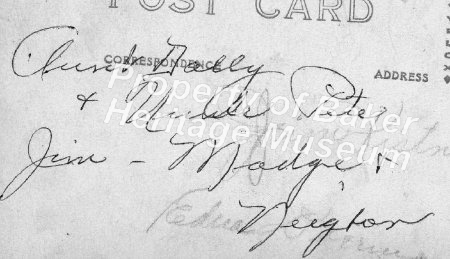 POST CARD
CORRESPONDENCE
ADDRESS
Aunt Dolly
& Uncle Pete
Jim - Madge &
Property of Baker
Heritage Museum